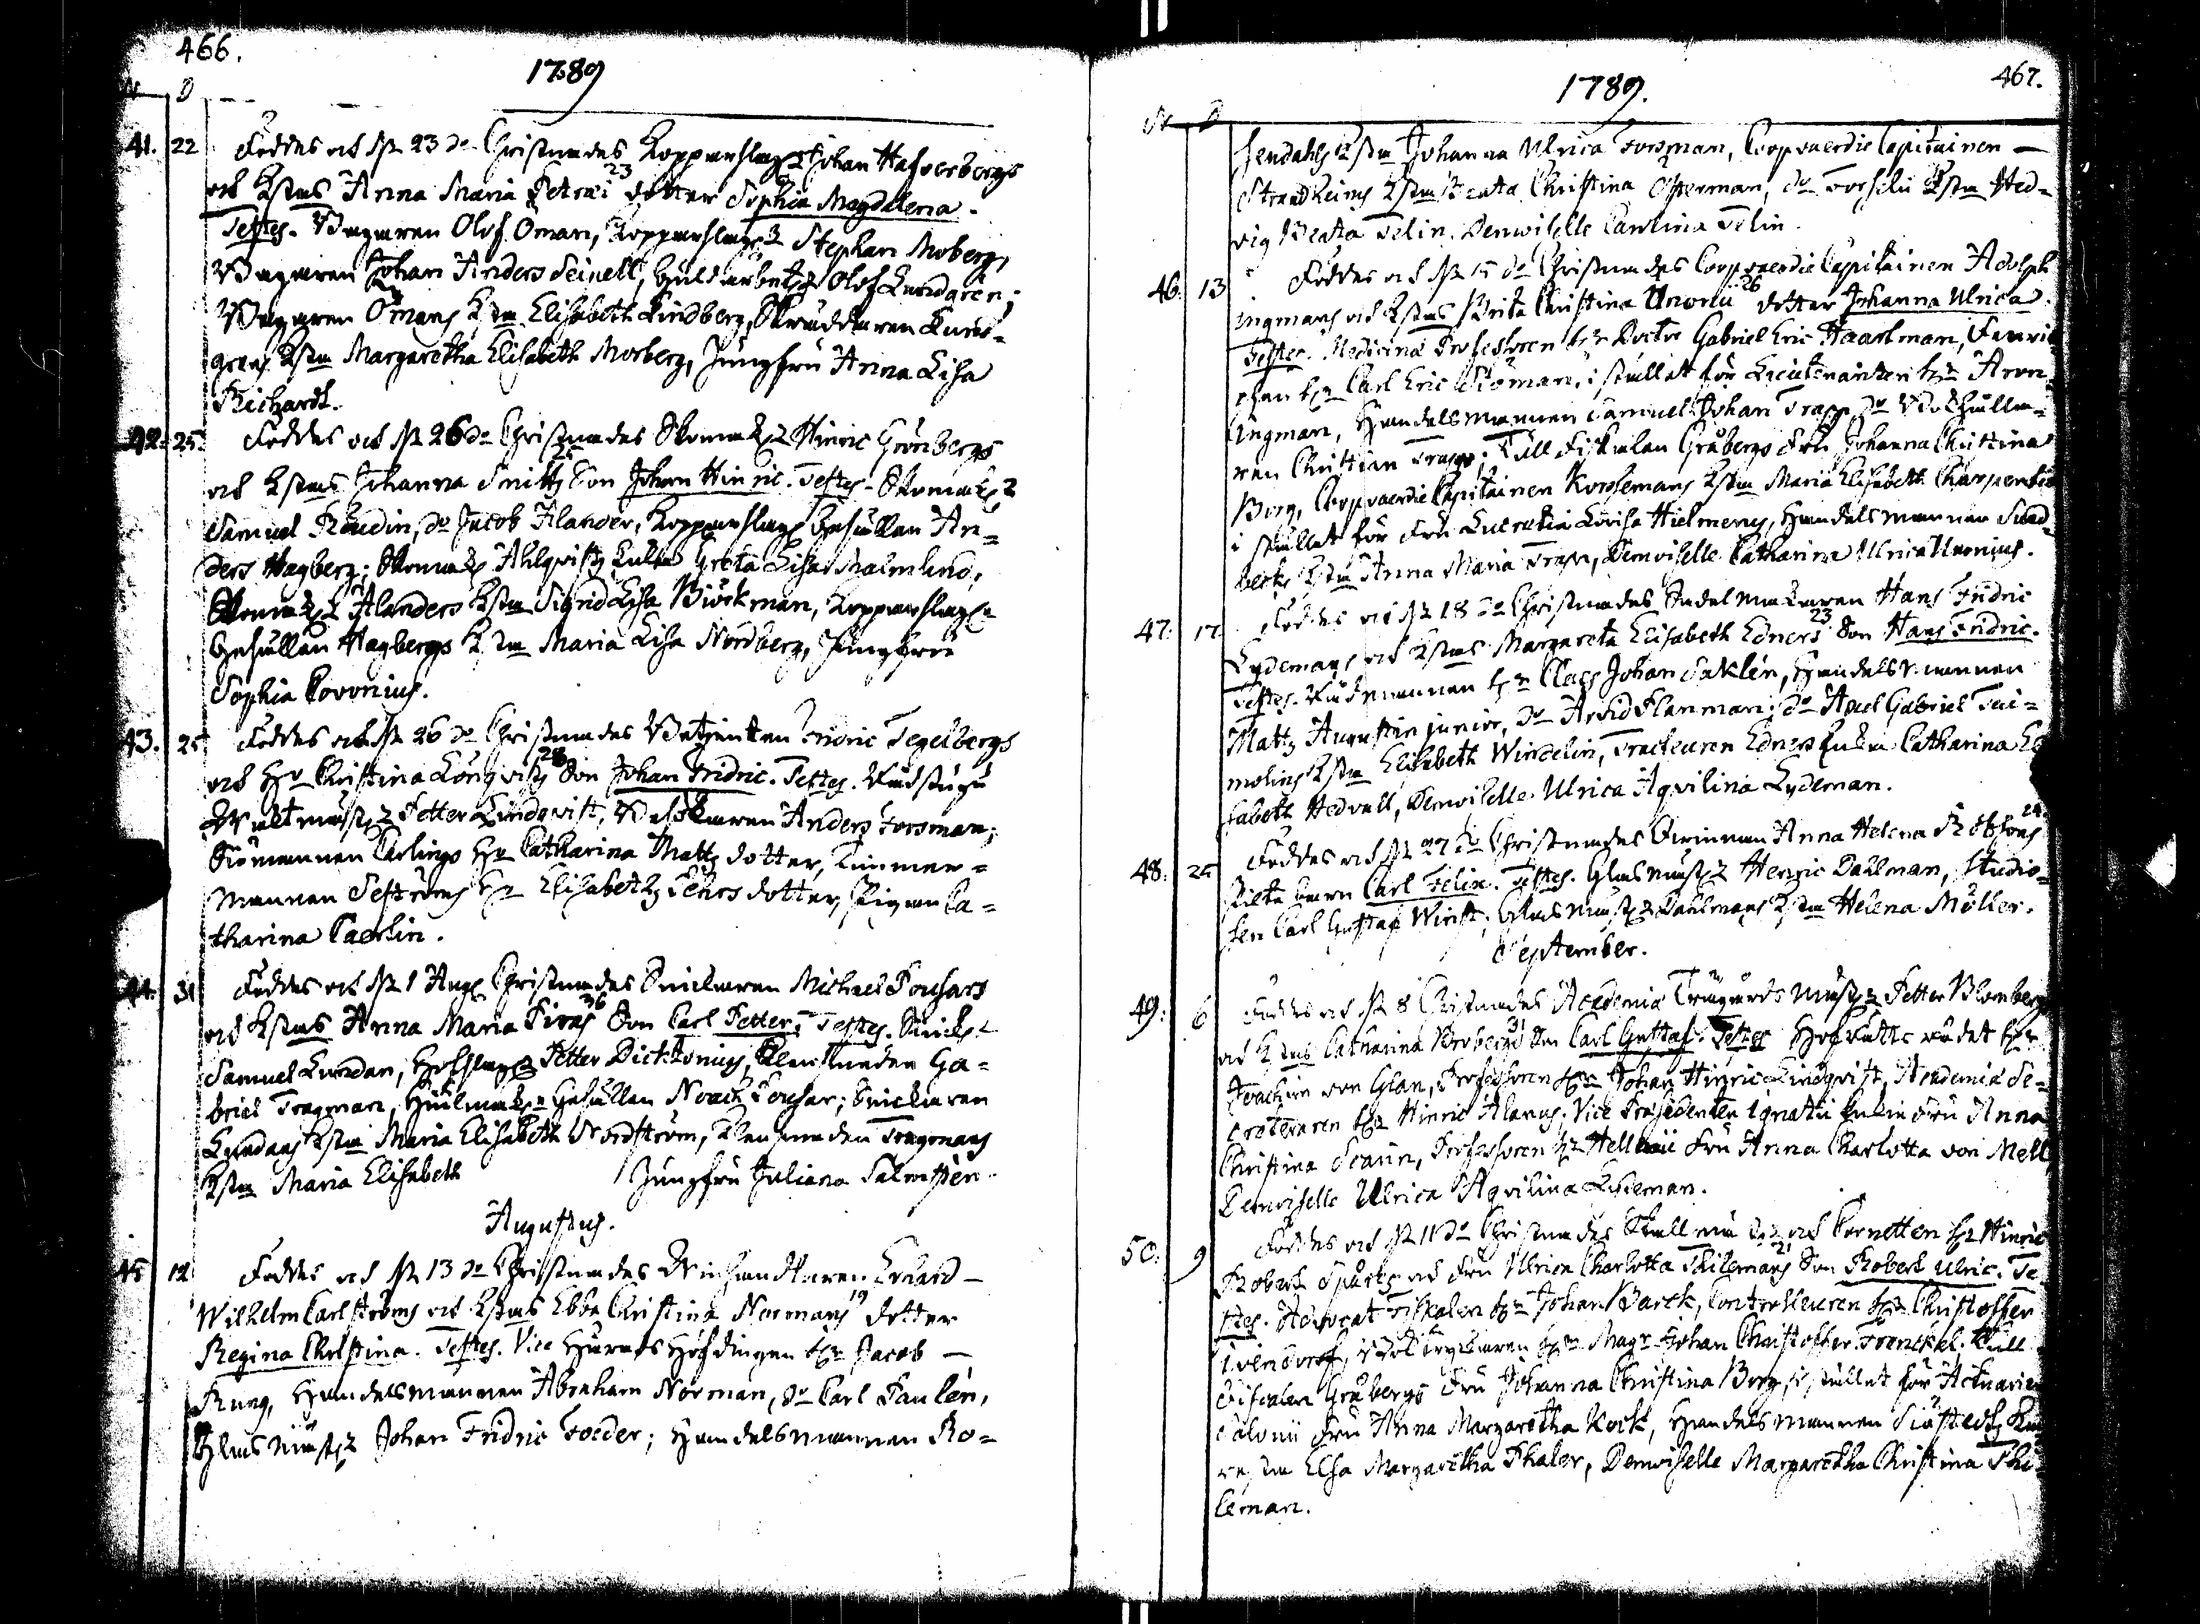 466.
1789
N D
41. 22 Föddes och d: 23 d:o Christnades Kopparslag: Johan Hafverbergs
och K:stus Anna Maria Petræi 23 dotter Sophia Magdalena.
Testes. Wagnaren Olof Öman, Kopparslag: Stephan Moberg,
Wagnaren Johan Anders Seinell, Guldarbet: Olof Lundgren;
Wagnaren Ömans K:stu Elisabeth Lindberg, Skräddaren Lund-
grens K:stu Margaretha Elisabeth Morberg, Jungfru Anna Lisa
Richardt.
42. 25. Föddes och d: 26 d:o Christnades Skomak: Hinric Grönbergs
och K:stus Johanna Smitts 25 Son Johan Hinric. Testes. Skomak:
Samuel Rändin, d:o Jacob Alander, Kopparslag: Gesällen An-
ders Hagberg; Skomak: Ahlqvists Enka Greta Lisa Malmlind,
Skomak: Alanders K:stu Sigrid Lisa Biörkman, Kopparslag:
Gesällen Hagbergs K:stu Maria Lisa Nordberg, Jungfru
Sophia Povonius.
43. 25 Föddes och d: 26 d:o Christnades Betjenten Fridric Tegelbergs
och H:u Christina Lönqvists 28 Son Johan Fridric. Testes. Rådstugu
Waktmäst: Petter Lindqvist, Wefskaren Anders Forsman;
Siömannen Carlings H:u Catharina Matts dotter, Timmer-
mannen Seströms H:u Elisabeth Pehrs dotter, Pigan Ca-
tharina Caerlin.
44. 31 Föddes och d: 1 Aug: Christnades Snickaren Michael Pousars
och K:stus Anna Maria Piras 36 Son Carl Petter. Testes. Snick:
Samuel Lundan, Hofslag: Petter Dicktonius, Klensmeden Ga-
briel Tragman, Hattmak: Gesällen Noach Pousar; Snickaren
Lundans K:stu Maria Elisabeth Nordström, Klensmeden Tragmans
K:stu Maria Elisabeth Jungfru Juliana Salmstén.
Augustus.
45 12 Föddes och d: 13 d:o Christnades Winhandlaren Eduard
Wilhelm Carlströms och K:stus Ebba Christina Normans 19 dotter
Regina Christina. Testes. Vice Härads Höfdingen H:r Jacob
Rung, Handelsmannen Abraham Norman, d:o Carl Paulén,
Glasmäst: Johan Fridric Foeder; Handelsmannen Ro-
467.
1789.
N D
sendahls K:stu Johanna Ulrica Forsman, Coopvaerdie Capitainen
Strandheims K:stu Beata Christina Österman, d:o K:stu Hed-
vig Beata Telin. Demoiselle Carolina Telin.
46. 13 Föddes och d: 15 d:o Christnades Coopvaerdie Capitainen Adolph
Ingmans och K:stus Brita Christina Unonii 26 dotter Johanna Ulrica.
Testes. Medicinæ Professoren H:r Doctor Gabriel Eric Haartman, Fenric-
chan H:r Carl Eric Sköman, i stället för Lieutenanten H:r Aron
Ingman, Handelsmannen Samuel Johan Trapp, d:o Bokhålla-
ren Christian Trapp; Tull Fiskalen Gråbergs Fru Johanna Christina
Borg, Coopvaerdie Capitainen Korsemans K:stu Maria Elisabeth Charpentier
i stället för Fru Lucretia Lovisa Hielmerus, Handelsmannen Sund-
becks K:stu Anna Maria Trapp, Demoiselle Catharina Ulrica Unonius.
47. 17. Föddes och d: 18 d:o Christnades Sadelmakaren Hans Fridric
Lydemans och K:stus Margareta Elisabeth Edners 23 Son Hans Fridric.
Testes. Rådmannen H:r Claes Johan Saklén, Handelsmannen
Matts Augustin junior, d:o Arvid Flanman; d:o Axel Gabriel Tai-
molins K:stu Elisabeth Windelin, Tracteuren Edners Enka Catharina El
sabeth Hedvall, Demoiselle Ulrica Aqvilina Lydeman.
48. 25 Föddes och d: 27 d:o Christnades Qvinnan Anna Helena Röbsons 24.
Oäkta barn Carl Felix. Testes. Glasmäst: Henric Dahlman, Studio-
sen Carl Gustaf Winst; Glasmäst: Dahlmans K:stu Helena Möller.
September.
49. 6 Föddes och d: 8 Christnades Academiæ Trägårds mäst: Petter Blomberg
och K:stus Catharina Brobergs 31 Son Carl Gustaf. Testes Hofrätts rådet H:r
Joachim von Glan, Professoren H:r Johan Hinric Lindqvist, Academiæ Se-
creteraren H:r Hinric Alanus; Vice Præsidenten Ignatii Enka Fru Anna
Christina Scarin, Professoren H:r Hellenii Fru Anna Charlotta von Mell,
Demoiselle Ulrica Aqvilina Lydeman.
50. 9 Föddes och d: 11 d:o Christnades och Cornetten H:r Hinric
Robert Spåres och Fru Ulrica Charlotta Thilemans 21 Son Robert Ulric. Te-
stes. Advocat Fiskalen H:r Johan Barck, Controlleuren H:r Christoffer
Ivendorff, Boktryckaren H:r Mag:r Johan Christoffer Frenckel. Tull
Fiscalen Gråbergs Fru Johanna Christina Borg, i stället för Actuarien
Calonii Fru Anna Margaretha Kock, Handelsmannen Siöstedts
K:stu Elsa Margaretha Thaler, Demoiselle Margaretha Christina Thi-
leman.